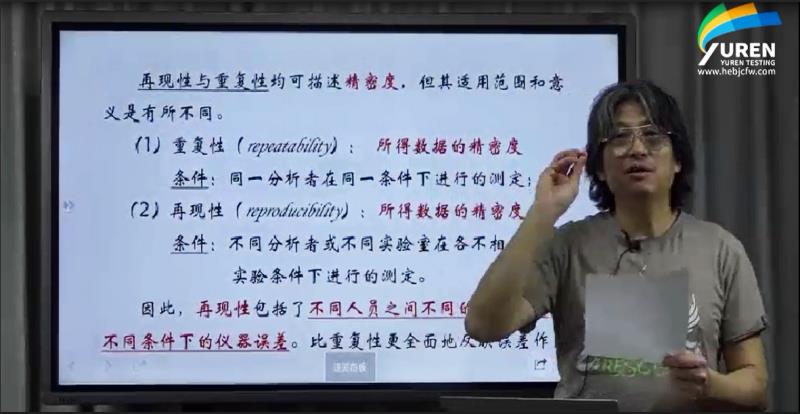 YUREN
YUREN TESTING
www.hebjcfw.com
再现性与重复性均可描述精密度，但其适用范围和意
义是有所不同。
(1) 重复性（repeatability）：所得数据的精密度
条件：同一分析者在同一条件下进行的测定；
(2) 再现性（reproducibility）：所得数据的精密度
条件：不同分析者或不同实验室在各不相
实验条件下进行的测定。
因此，再现性包括了不同人员之间不同的
不同条件下的仪器误差。比重复性更全面地反映误差作